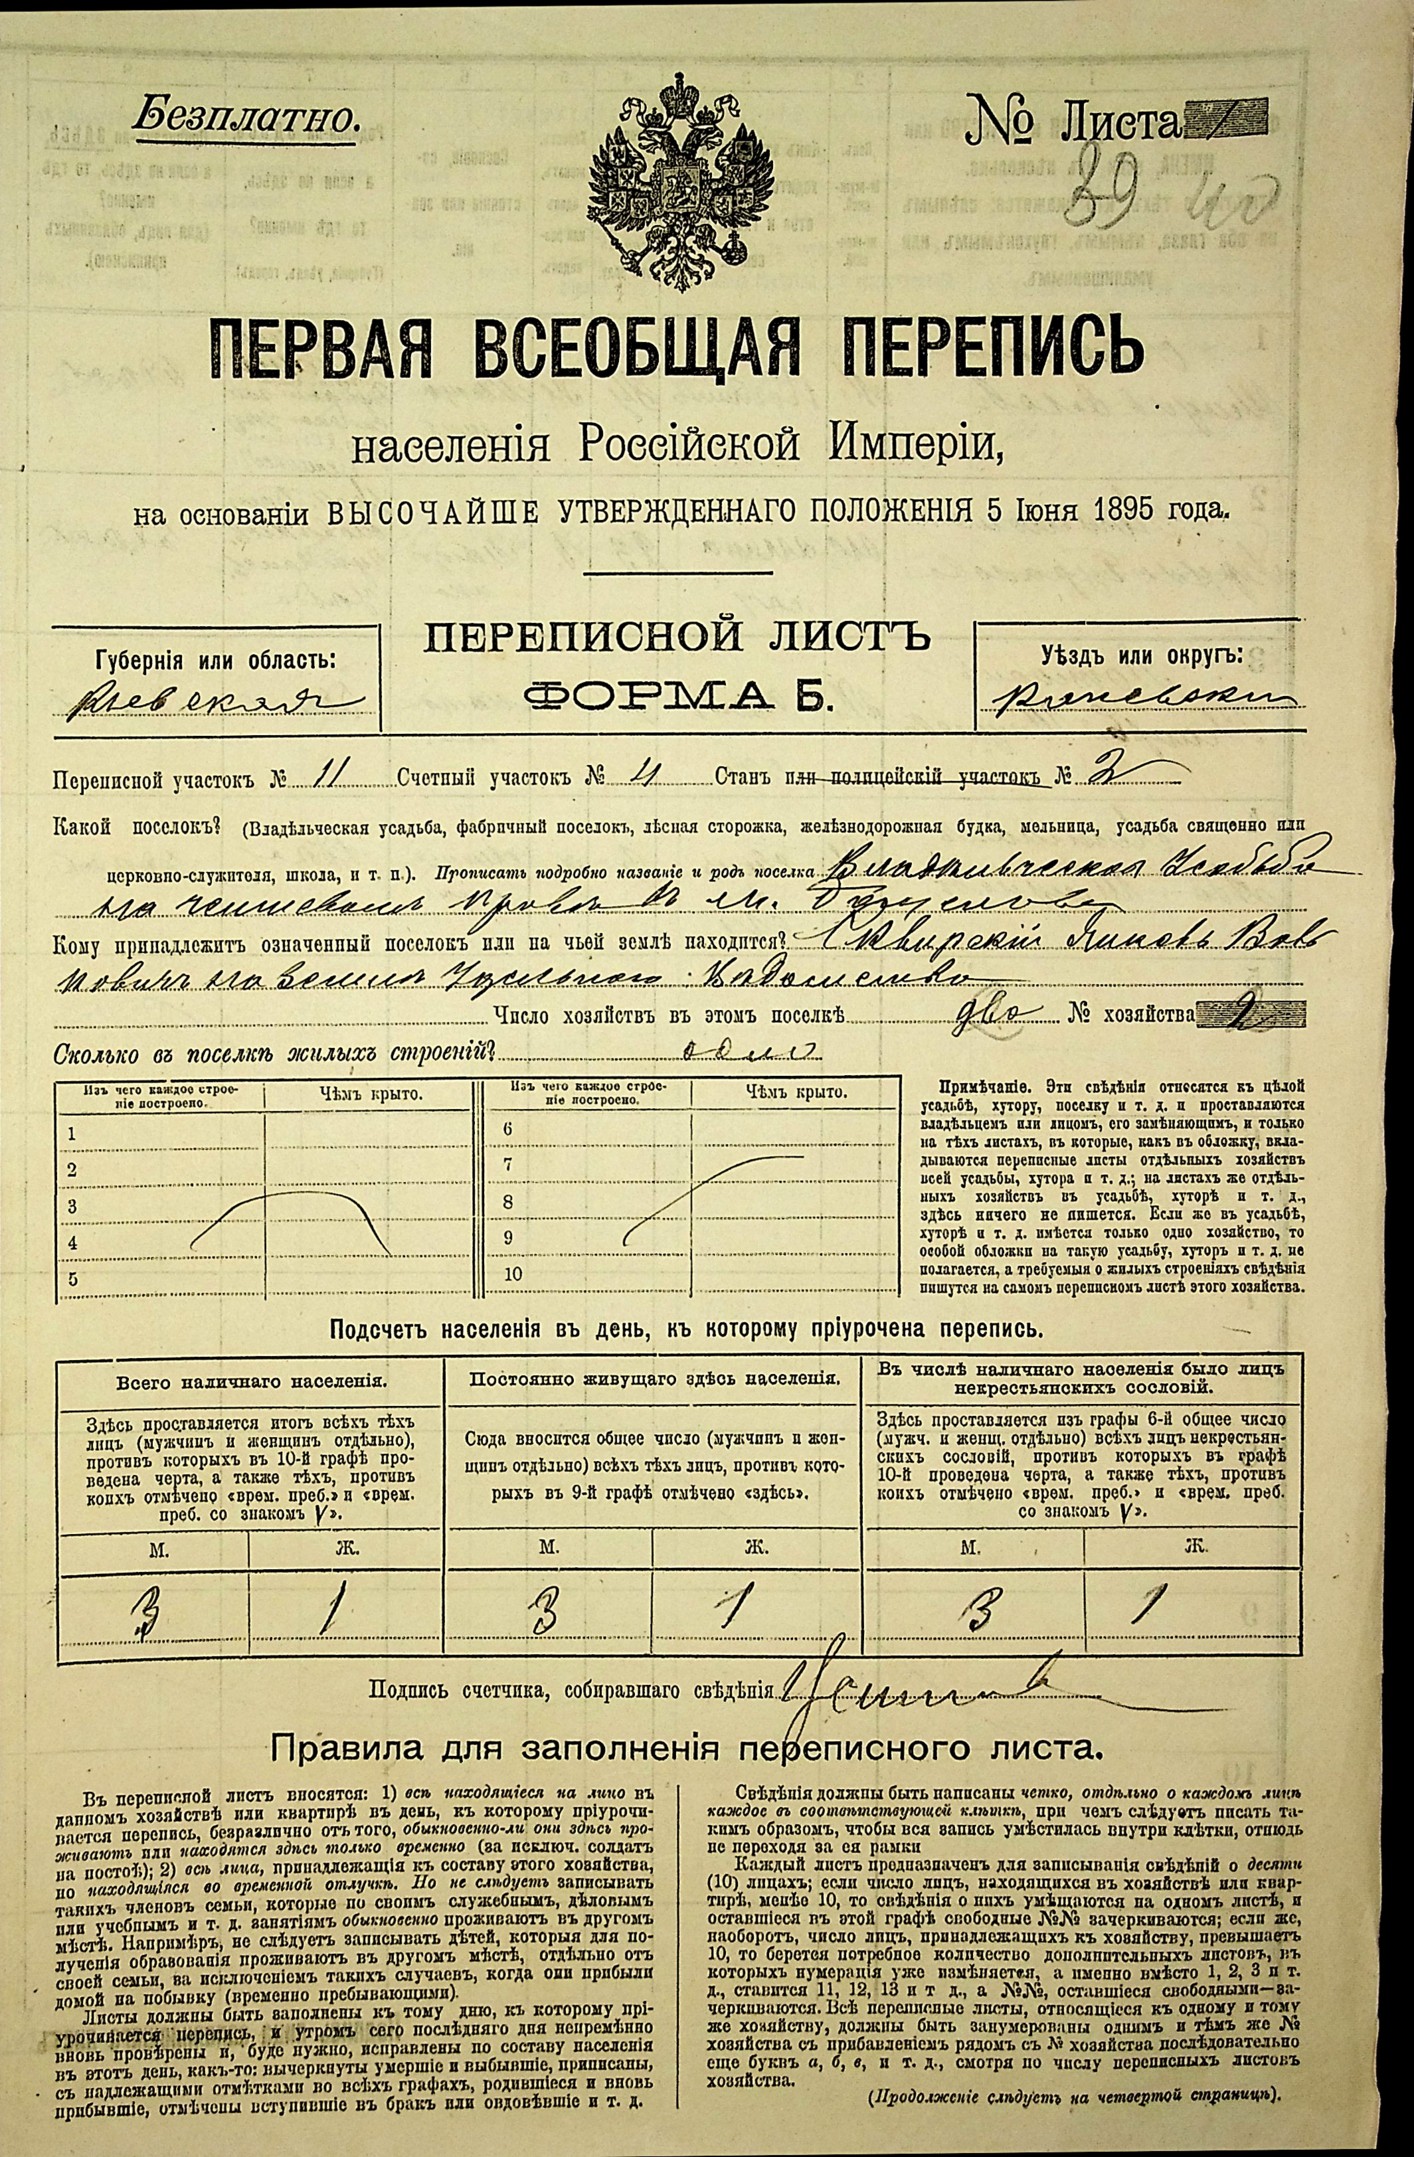 Безплатно.
№ Листа
39 40
ПЕРВАЯ ВСЕОБЩАЯ ПЕРЕПИСЬ
населенія Россійской Имперіи,
на основаніи ВЫСОЧАЙШЕ УТВЕРЖДЕННАГО ПОЛОЖЕНІЯ 5 Іюня 1895 года.
ПЕРЕПИСНОЙ ЛИСТЪ
ФОРМА Б.
Губернія или область:
Кіевская
Уѣздъ или округъ:
Переписной участокъ № 11 Счетный участокъ № 4 Станъ или полицейскій участокъ № 2
Какой поселокъ? (Владѣльческая усадьба, фабричный поселокъ, лѣсная сторожка, желѣзнодорожная будка, мельница, усадьба священно или
церковно-служителя, школа, и т. п.). Прописать подробно названіе и родъ поселка Владѣльческая Усадьба
на чиншевомъ правѣ въ м.
Кому принадлежитъ означенный поселокъ или на чьей землѣ находится? Сквирскій Янковъ
на землѣ Удѣльнаго Вѣдомства
Число хозяйствъ въ этомъ поселкѣ два № хозяйства 2
Сколько въ поселкѣ жилыхъ строеній? одно
Изъ чего каждое строе-
ніе построено. Чѣмъ крыто. Изъ чего каждое строе-
ніе построено. Чѣмъ крыто.
1 6
2 7
3 8
4 9
5 10
Примѣчаніе. Эти свѣдѣнія относятся къ цѣлой
усадьбѣ, хутору, поселку и т. д. и проставляются
владѣльцемъ или лицомъ, его замѣняющимъ, и только
на тѣхъ листахъ, въ которые, какъ въ обложку, вкла-
дываются переписные листы отдѣльныхъ хозяйствъ
всей усадьбы, хутора и т. д.; на листахъ же отдѣль-
ныхъ хозяйствъ въ усадьбѣ, хуторѣ и т. д.,
здѣсь ничего не пишется. Если же въ усадьбѣ,
хуторѣ и т. д. имѣется только одно хозяйство, то
особой обложки на такую усадьбу, хуторъ и т. д. не
полагается, а требуемыя о жилыхъ строеніяхъ свѣдѣнія
пишутся на самомъ переписномъ листѣ этого хозяйства.
Подсчетъ населенія въ день, къ которому пріурочена перепись.
Всего наличнаго населенія.
Здѣсь проставляется итогъ всѣхъ тѣхъ
лицъ (мужчинъ и женщинъ отдѣльно),
противъ которыхъ въ 10-й графѣ про-
ведена черта, а также тѣхъ, противъ
коихъ отмѣчено «врем. преб.» и «врем.
преб. со знакомъ V».
Постоянно живущаго здѣсь населенія.
Сюда вносится общее число (мужчинъ и жен-
щинъ отдѣльно) всѣхъ тѣхъ лицъ, противъ кото-
рыхъ въ 9-й графѣ отмѣчено «здѣсь».
Въ числѣ наличнаго населенія было лицъ
некрестьянскихъ сословій.
Здѣсь проставляется изъ графы 6-й общее число
(мужч. и женщ. отдѣльно) всѣхъ лицъ некрестьян-
скихъ сословій, противъ которыхъ въ графѣ
10-й проведена черта, а также тѣхъ, противъ
коихъ отмѣчено «врем. преб.» и «врем. преб.
со знакомъ V».
М. Ж. М. Ж. М. Ж.
3 1 3 1 3 1
Подпись счетчика, собиравшаго свѣдѣнія
Правила для заполненія переписного листа.
Въ переписной листъ вносятся: 1) всѣ находящіеся на лицо въ
данномъ хозяйствѣ или квартирѣ въ день, къ которому пріурочи-
вается перепись, безразлично отъ того, обыкновенно-ли они здѣсь про-
живаютъ или находятся здѣсь только временно (за исключ. солдатъ
на постоѣ); 2) всѣ лица, принадлежащія къ составу этого хозяйства,
но находящіяся во временной отлучкѣ. Но не слѣдуетъ записывать
такихъ членовъ семьи, которые по своимъ служебнымъ, дѣловымъ
или учебнымъ и т. д. занятіямъ обыкновенно проживаютъ въ другомъ
мѣстѣ. Напримѣръ, не слѣдуетъ записывать дѣтей, которыя для по-
лученія образованія проживаютъ въ другомъ мѣстѣ, отдѣльно отъ
своей семьи, за исключеніемъ такихъ случаевъ, когда они прибыли
домой на побывку (временно пребывающими).
Листы должны быть заполнены къ тому дню, къ которому прі-
урочивается перепись, и утромъ сего послѣдняго дня непремѣнно
вновь провѣрены и, буде нужно, исправлены по составу населенія
въ этотъ день, какъ-то: вычеркнуты умершіе и выбывшіе, приписаны,
съ надлежащими отмѣтками во всѣхъ графахъ, родившіеся и вновь
прибывшіе, отмѣчены вступившіе въ бракъ или овдовѣвшіе и т. д.
Свѣдѣнія должны быть написаны четко, отдѣльно о каждомъ лицѣ
каждое въ соотвѣтствующей клѣткѣ, при чемъ слѣдуетъ писать та-
кимъ образомъ, чтобы вся запись умѣстилась внутри клѣтки, отнюдь
не переходя за ея рамки
Каждый листъ предназначенъ для записыванія свѣдѣній о десяти
(10) лицахъ; если число лицъ, находящихся въ хозяйствѣ или квар-
тирѣ, менѣе 10, то свѣдѣнія о нихъ умѣщаются на одномъ листѣ, и
оставшіеся въ этой графѣ свободные №№ зачеркиваются; если же,
наоборотъ, число лицъ, принадлежащихъ къ хозяйству, превышаетъ
10, то берется потребное количество дополнительныхъ листовъ, въ
которыхъ нумерація уже измѣняется, а именно вмѣсто 1, 2, 3 и т.
д., ставится 11, 12, 13 и т д., а №№, оставшіеся свободными—за-
черкиваются. Всѣ переписные листы, относящіеся къ одному и тому
же хозяйству, должны быть занумерованы однимъ и тѣмъ же №
хозяйства съ прибавленіемъ рядомъ съ № хозяйства послѣдовательно
еще буквъ а, б, в, и т. д., смотря по числу переписныхъ листовъ
хозяйства.
(Продолженіе слѣдуетъ на четвертой страницѣ).